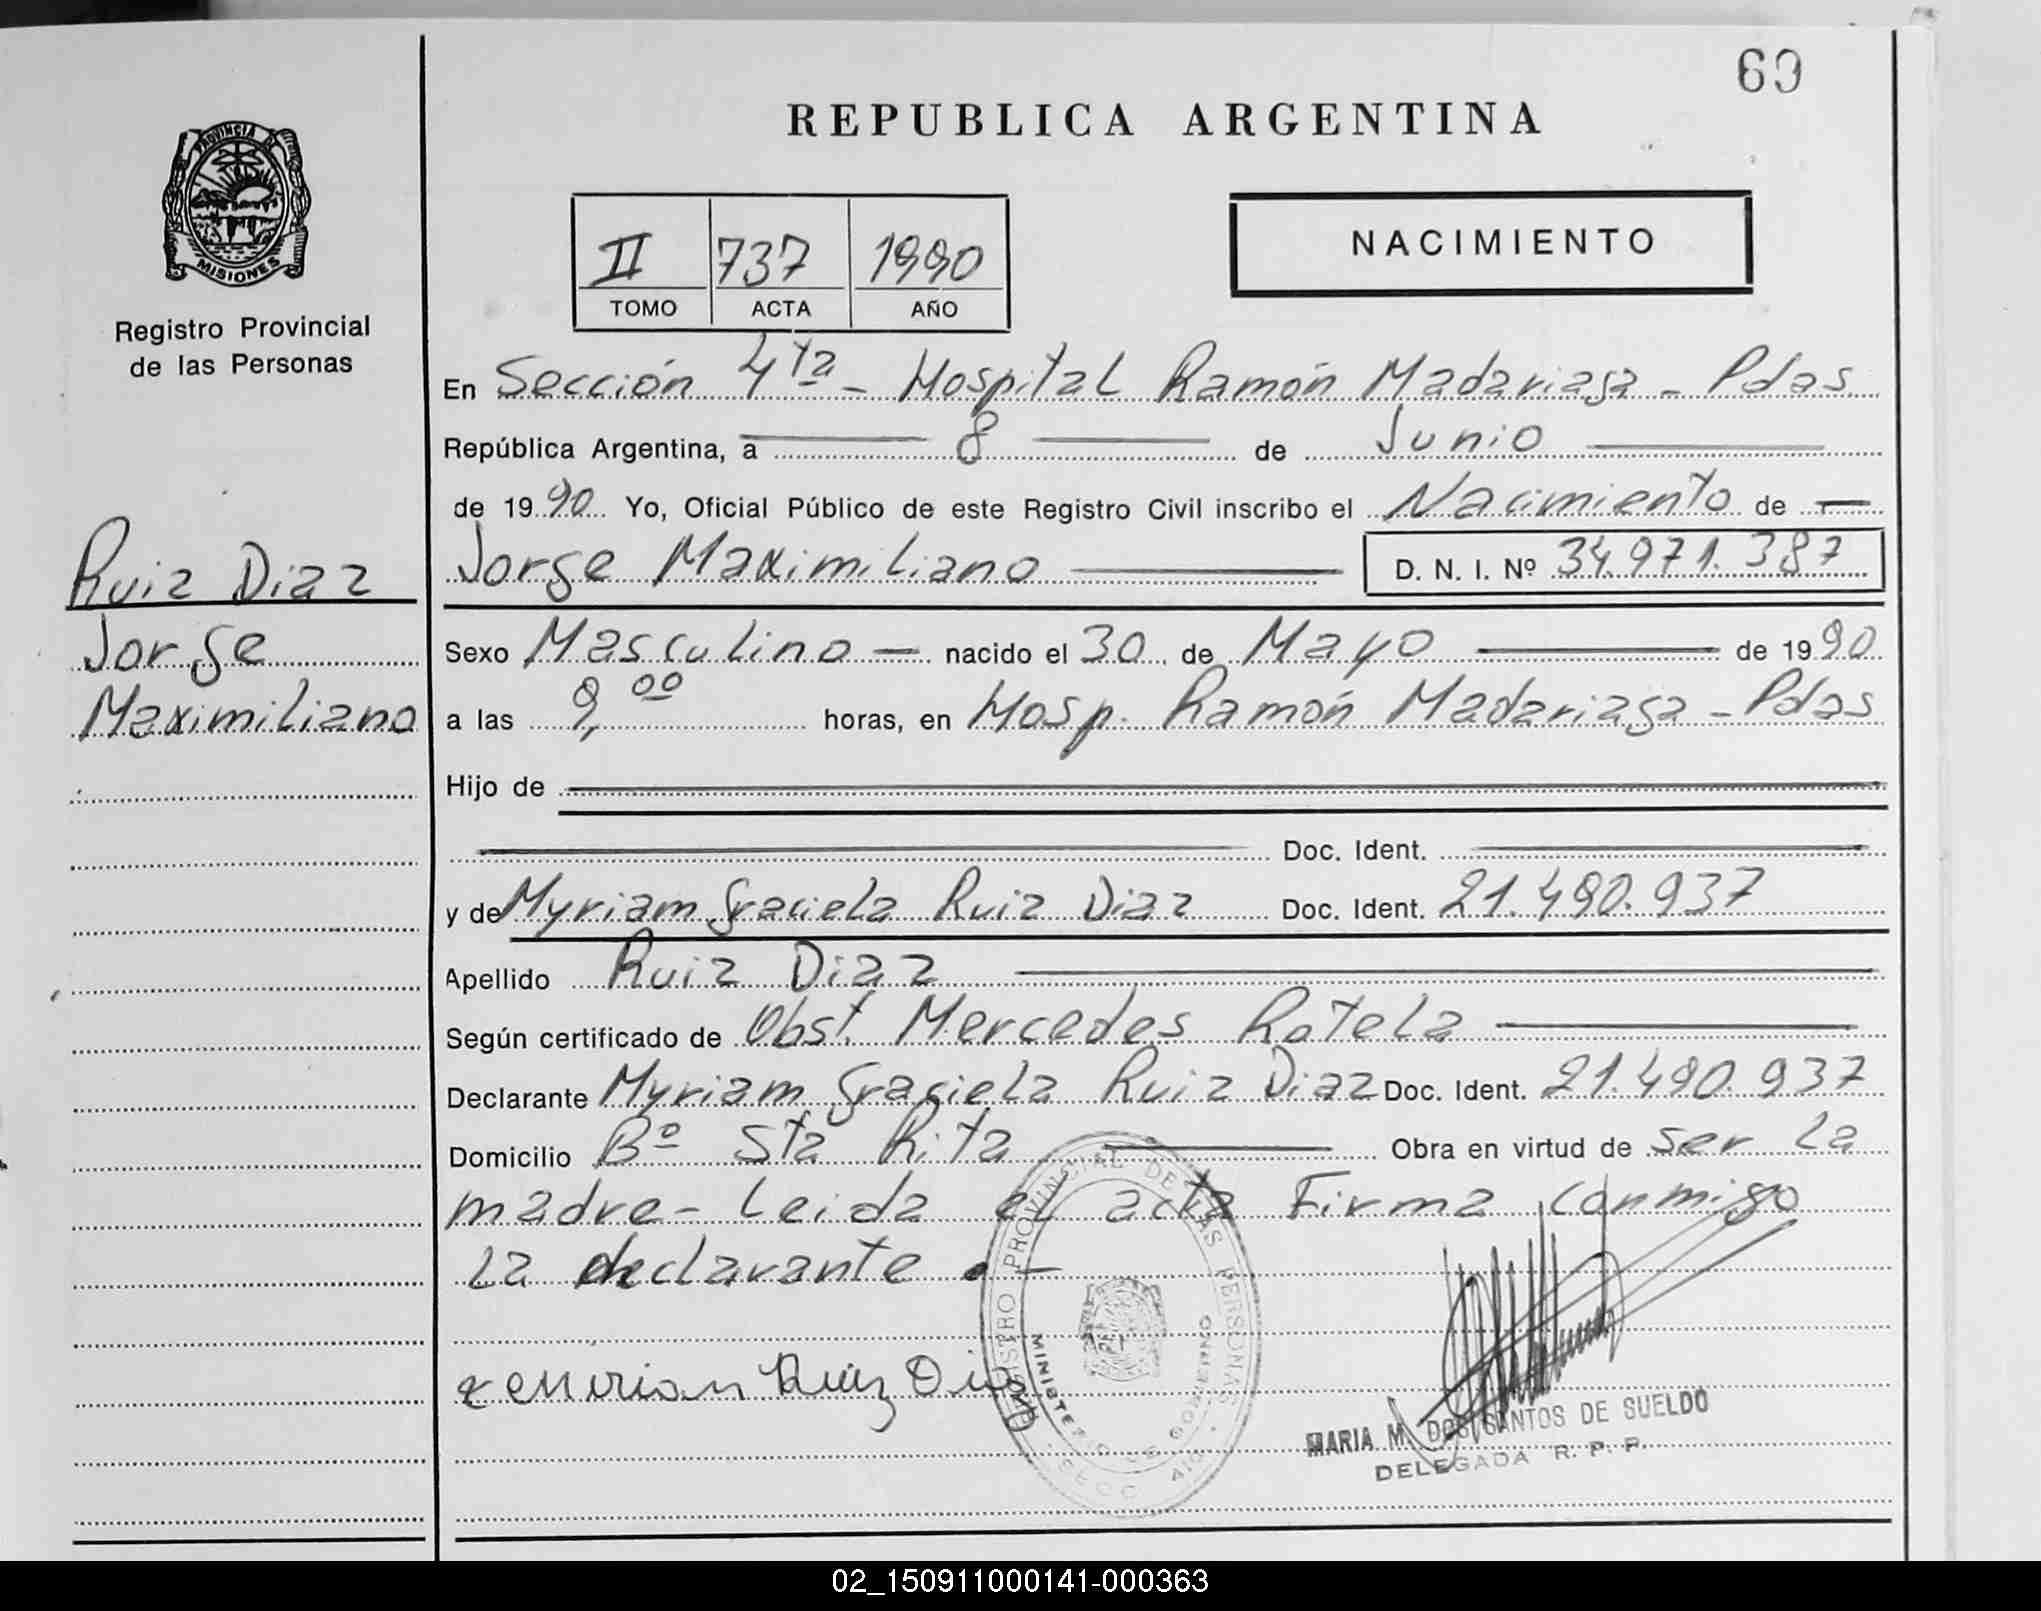 69
REPUBLICA ARGENTINA
PROVINCIA DE
MISIONES
Registro Provincial
de las Personas
II 737 1990
TOMO ACTA AÑO
NACIMIENTO
En Sección 4ta - Hospital Ramón Madariaga - Pdas.
República Argentina, a 8 de Junio
de 1990 Yo, Oficial Público de este Registro Civil inscribo el Nacimiento de —
Jorge Maximiliano D. N. I. Nº 34.971.387
Ruiz Diaz
Jorge
Maximiliano
Sexo Masculino — nacido el 30 de Mayo de 1990
a las 9,00 horas, en Hosp. Ramón Madariaga - Pdas
Hijo de
Doc. Ident.
y de Myriam Graciela Ruiz Diaz Doc. Ident. 21.490.937
Apellido Ruiz Diaz
Según certificado de Obst. Mercedes Rotela
Declarante Myriam Graciela Ruiz Diaz Doc. Ident. 21.490.937
Domicilio Bº Sta Rita Obra en virtud de ser la
madre - Leida el acta Firma conmigo
la declarante . -
Ruiz Diaz
REGISTRO PROVINCIAL DE LAS PERSONAS
MINISTERIO DE GOBIERNO
MARIA M. DOS SANTOS DE SUELDO
DELEGADA R. P. P.
02_150911000141-000363